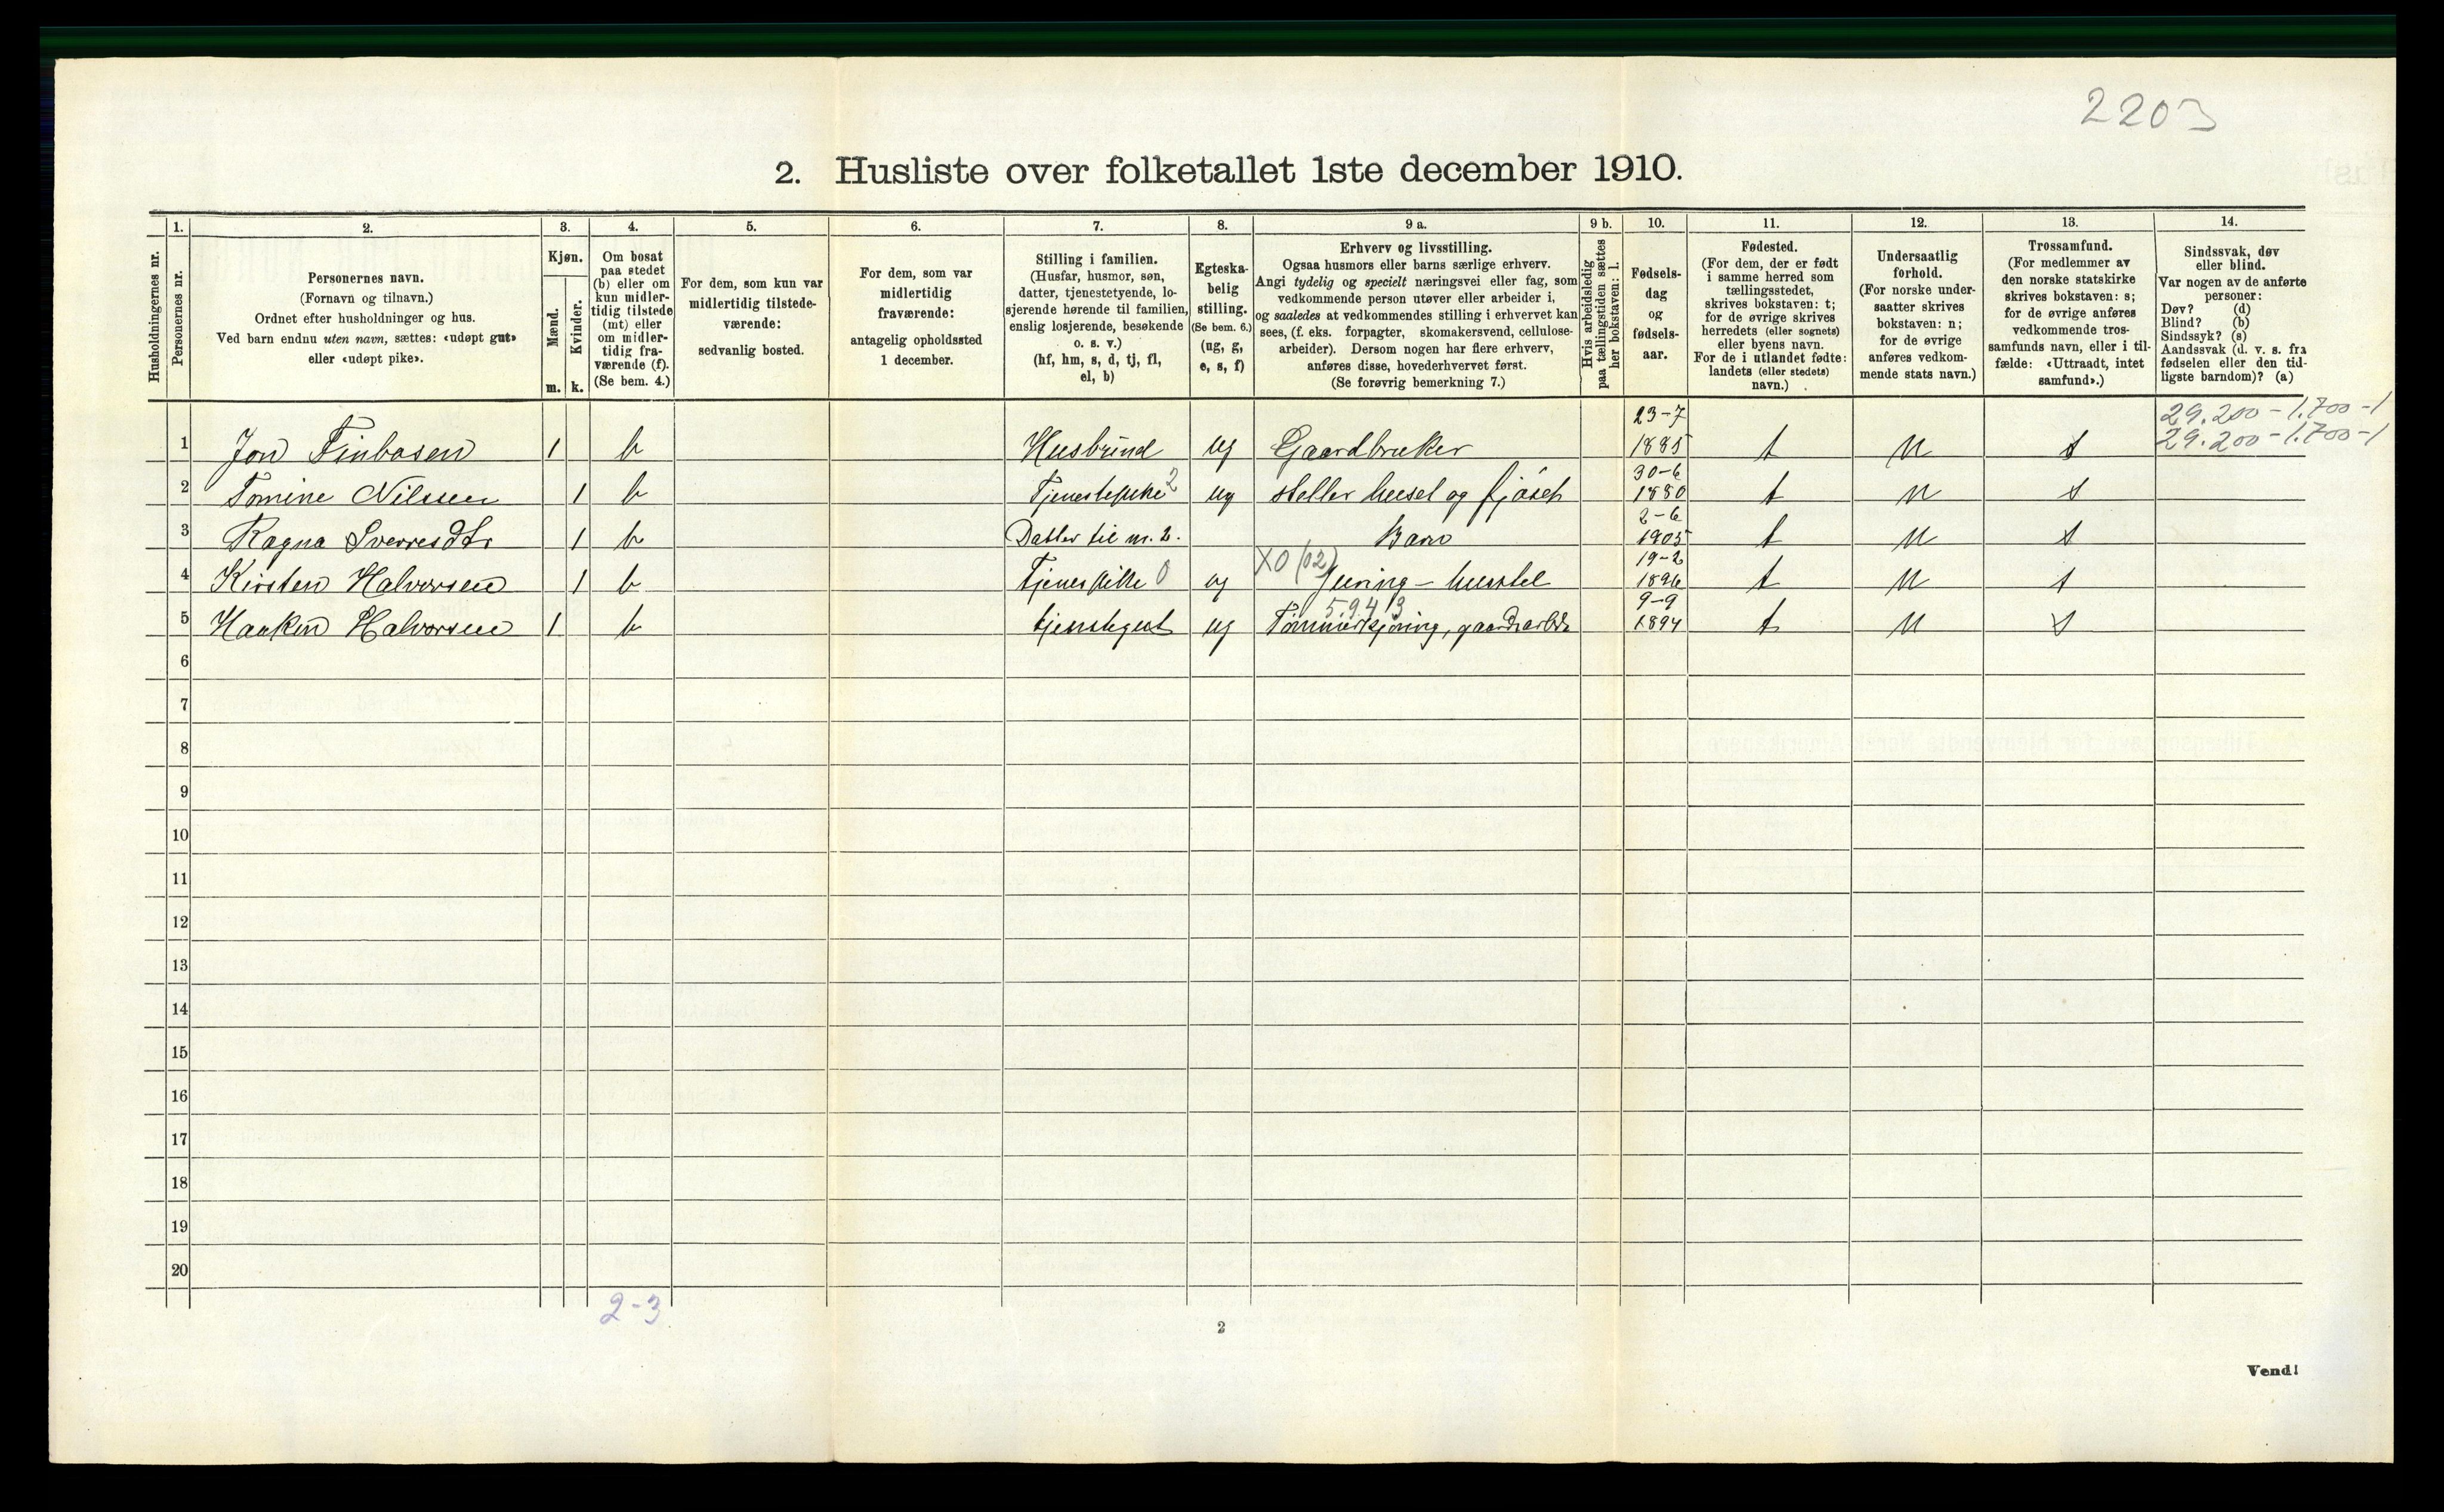 2203
2. Husliste over folketallet 1ste december 1910.
Husholdningernes nr.
1.
Personernes nr.
2.
Personernes navn.
(Fornavn og tilnavn.)
Ordnet efter husholdninger og hus.
Ved barn endnu uten navn, sættes: «udøpt gut»
eller «udøpt pike».
3.
Kjøn.
Mænd.
m.
Kvinder.
k.
4.
Om bosat
paa stedet
(b) eller om
kun midler-
tidig tilstede
(mt) eller
om midler-
tidig fra-
værende (f).
(Se bem. 4.)
5.
For dem, som kun var
midlertidig tilstede-
værende:
sedvanlig bosted.
6.
For dem, som var
midlertidig
fraværende:
antagelig opholdssted
1 december.
7.
Stilling i familien.
(Husfar, husmor, søn,
datter, tjenestetyende, lo-
sjerende hørende til familien,
enslig losjerende, besøkende
o. s. v.)
(hf, hm, s, d, tj, fl,
el, b)
8.
Egteska-
belig
stilling.
(Se bem. 6.)
(ug, g,
e, s, f)
9 a.
Erhverv og livsstilling.
Ogsaa husmors eller barns særlige erhverv.
Angi tydelig og specielt næringsvei eller fag, som
vedkommende person utøver eller arbeider i,
og saaledes at vedkommendes stilling i erhvervet kan
sees, (f. eks. forpagter, skomakersvend, cellulose-
arbeider). Dersom nogen har flere erhverv,
anføres disse, hovederhvervet først.
(Se forøvrig bemerkning 7.)
9 b.
Hvis arbeidsledig
paa tællingstiden sættes
her bokstaven: l.
10.
Fødsels-
dag
og
fødsels-
aar.
11.
Fødested.
(For dem, der er født
i samme herred som
tællingsstedet,
skrives bokstaven: t;
for de øvrige skrives
herredets (eller sognets)
eller byens navn.
For de i utlandet fødte:
landets (eller stedets)
navn.)
12.
Undersaatlig
forhold.
(For norske under-
saatter skrives
bokstaven: n;
for de øvrige
anføres vedkom-
mende stats navn.)
13.
Trossamfund.
(For medlemmer av
den norske statskirke
skrives bokstaven: s;
for de øvrige anføres
vedkommende tros-
samfunds navn, eller i til-
fælde: «Uttraadt, intet
samfund».)
14.
Sindssvak, døv
eller blind.
Var nogen av de anførte
personer:
Døv? (d)
Blind? (b)
Sindssyk? (s)
Aandssvak (d. v. s. fra
fødselen eller den tid-
ligste barndom)? (a)
29.200 - 1.700 - 1
1 Jon Finbosen 1 b Husbund ug Gaardbruker 23-7 1885 t n s 29.200 - 1.700 - 1
2 Tomine Nilssen 1 b Tjenestepike 2 ug steller huset og fjøset 30-6 1880 t n s
3 Ragna Sverresdtr 1 b Datter til nr. 2. Barn 2-6 1905 t n s
4 Kirsten Halvorsen 1 b Tjenespike 0 ug X0 (02) - husstel 19-2 1896 t n s
5 Haakon Halvorsen 1 b tjenstegut ug 5.943 Tømmerkjøring, gaardsarbde 9-9 1894 t n s
6
7
8
9
10
11
12
13
14
15
16
17
18
19
20
2-3
2
Vend!